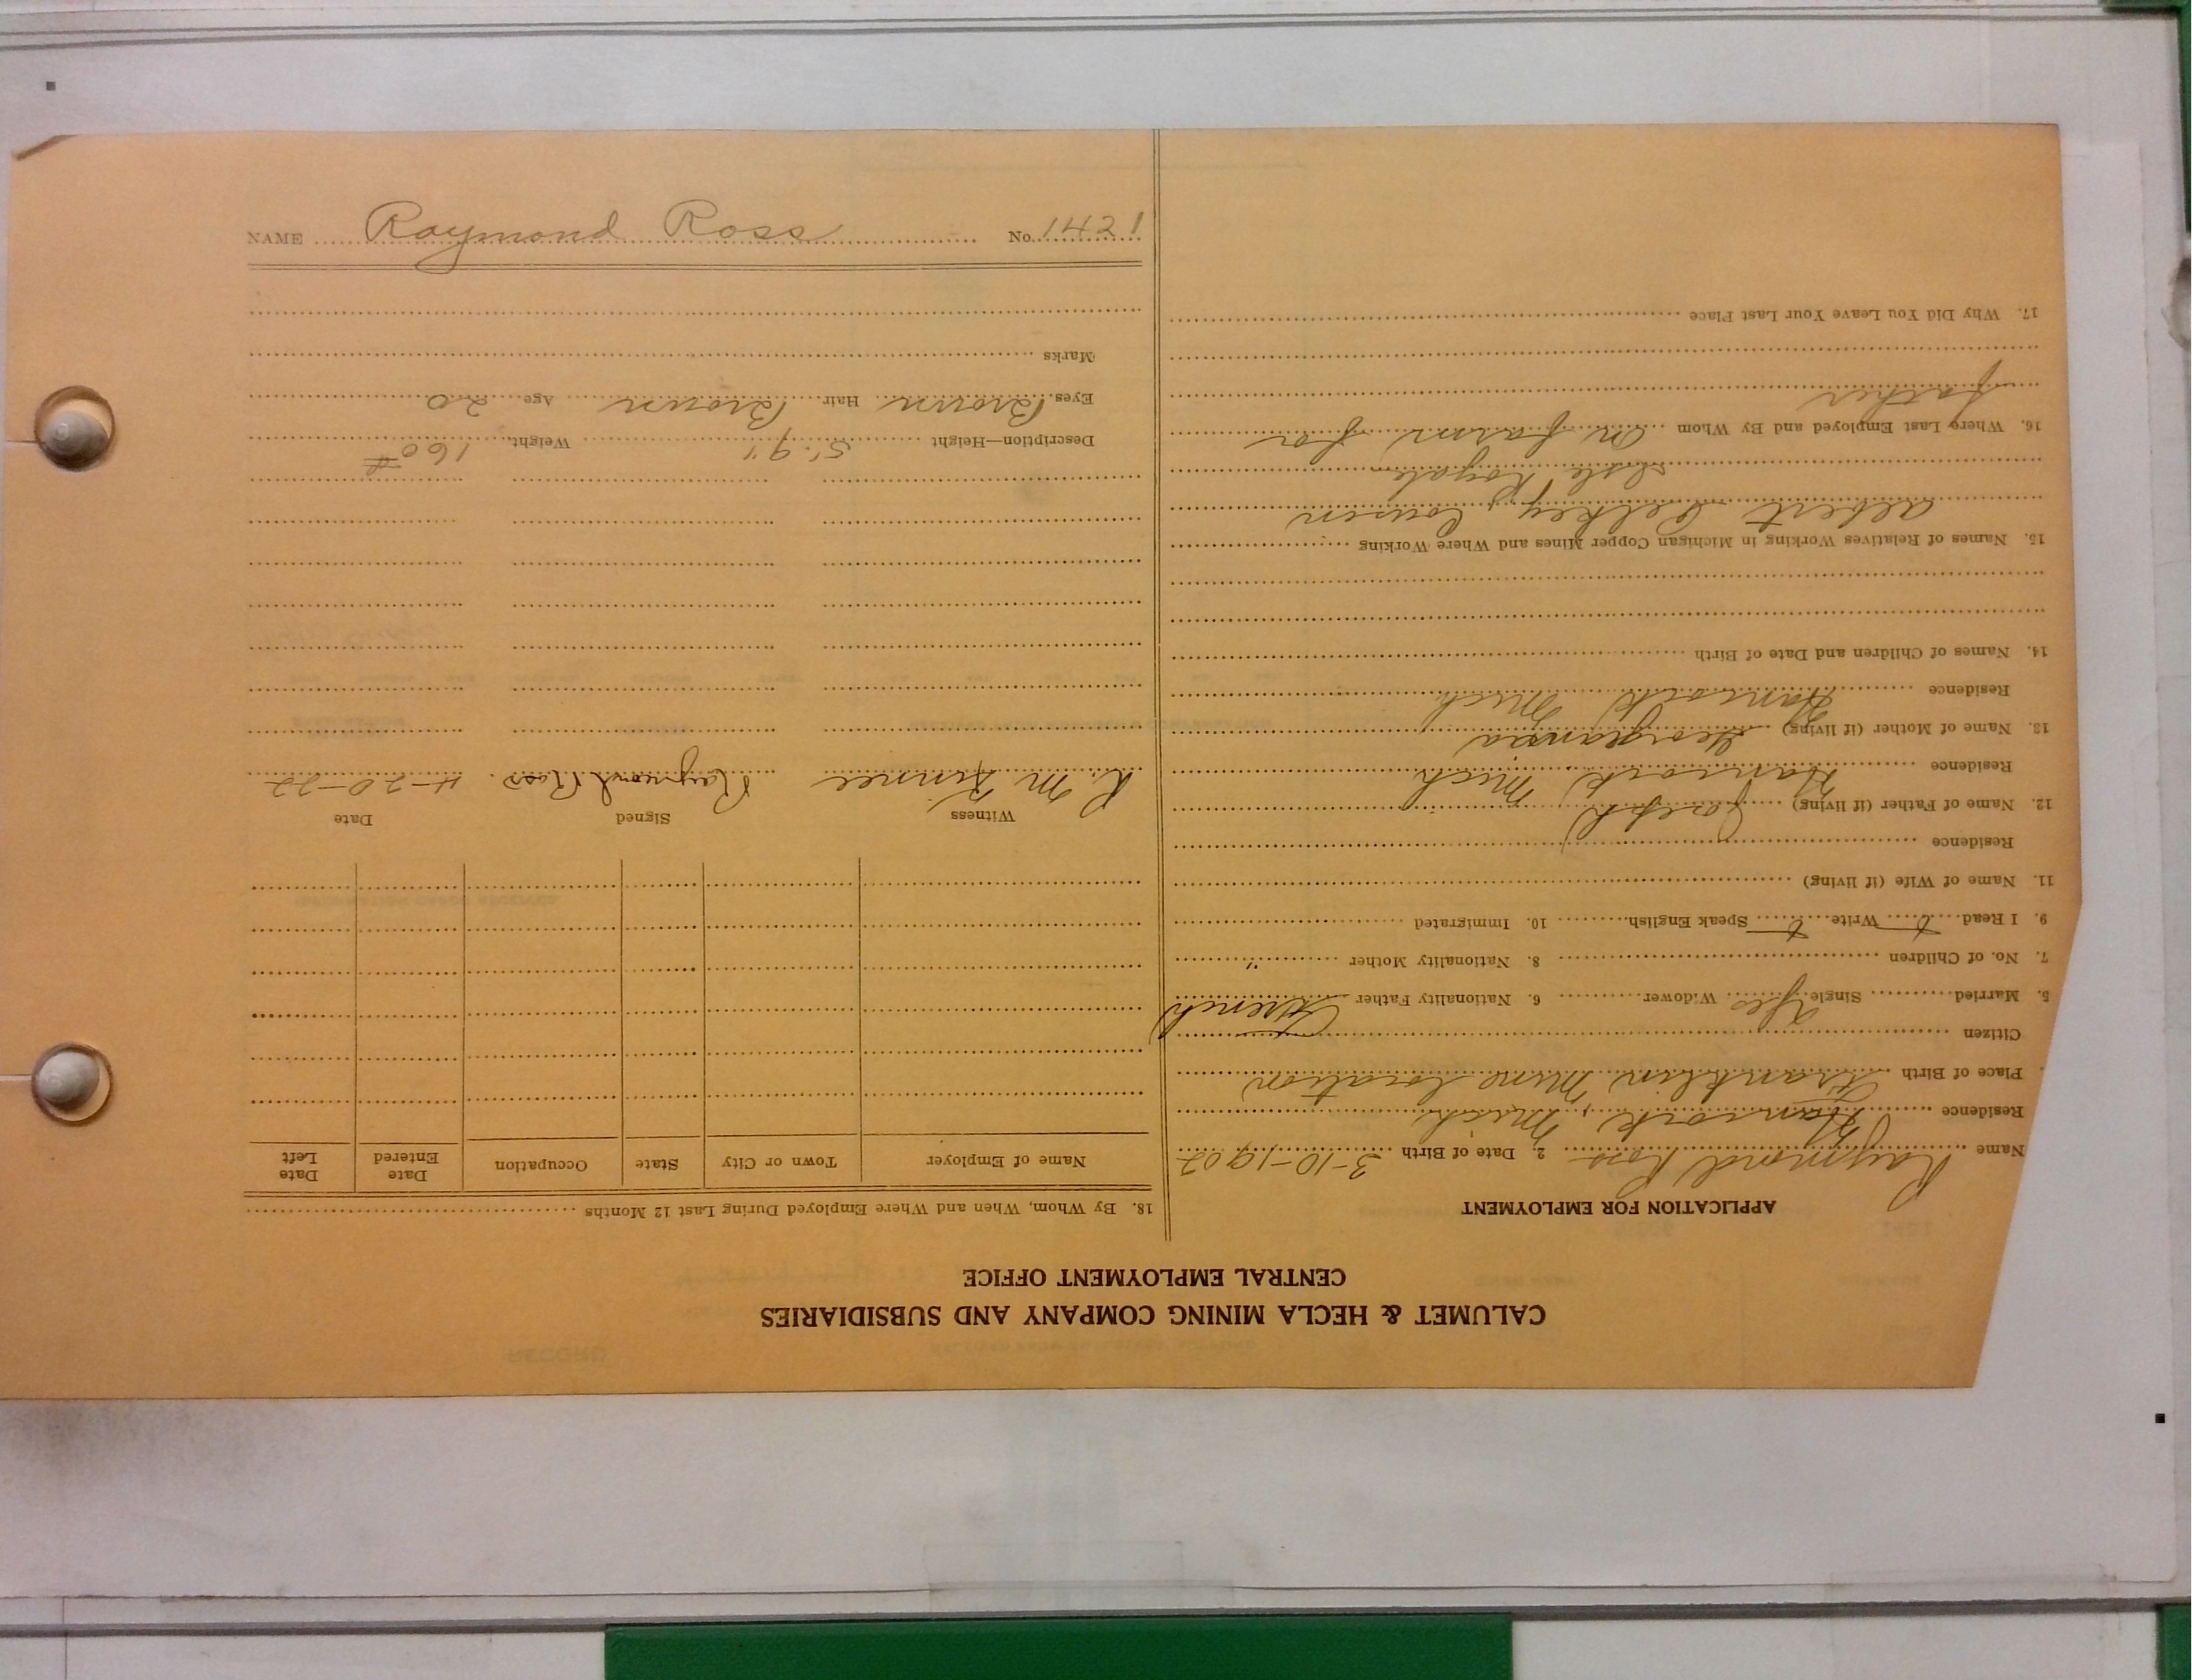 CALUMET & HECLA MINING COMPANY AND SUBSIDIARIES
CENTRAL EMPLOYMENT OFFICE
APPLICATION FOR EMPLOYMENT
Name Raymond Ross 2. Date of Birth 3-10-1902
Residence Hancock, Mich
Place of Birth Franklin Mine Location
Citizen
5. Married Single Yes Widower 6. Nationality Father French
7. No. of Children 8. Nationality Mother "
9. I Read Write Speak English 10. Immigrated
11. Name of Wife (if living)
Residence
12. Name of Father (if living) Joseph
Residence Hancock Mich
13. Name of Mother (if living) Georgianna
Residence Hancock Mich
14. Names of Children and Date of Birth
15. Names of Relatives Working in Michigan Copper Mines and Where Working
Albert Pelkey, Cousin
Isle Royale
16. Where Last Employed and By Whom On farm for
father
17. Why Did You Leave Your Last Place
18. By Whom, When and Where Employed During Last 12 Months
Name of Employer Town or City State Occupation Date Entered Date Left
Witness Signed Date
R. M. Raymond Ross. 4-20-22
Description—Height 5'.9" Weight 160#
Eyes Brown Hair Brown Age 20
Marks
NAME Raymond Ross No. 1421